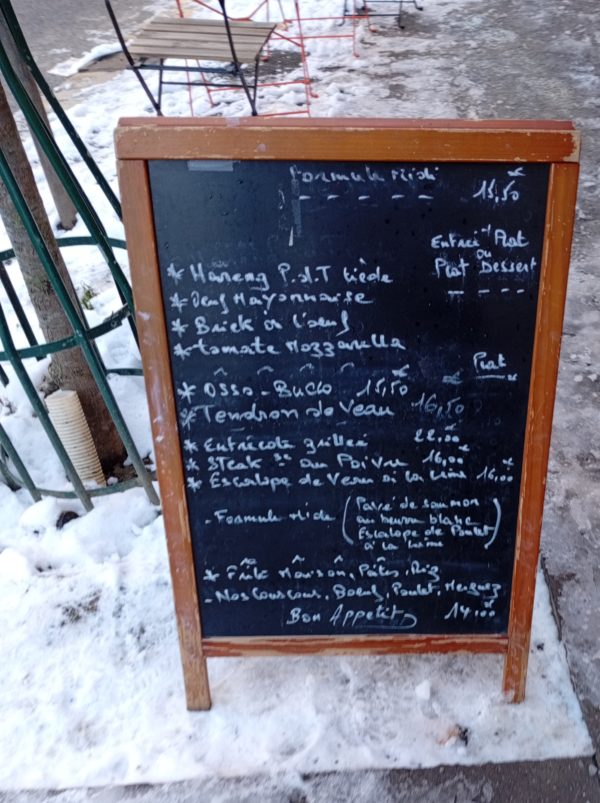 Formule Midi 15,50
Entrée Plat
ou
Plat Dessert
* Hareng P.d.T tiède
* Oeuf Mayonnaise
* Brick à l'oeuf
* tomate Mozzarella
Plat
* Osso-Buco 15,50
* Tendron de Veau 16,50
* Entrecôte grillée 22,00
* Steak au Poivre 16,00
* Escalope de Veau à la crème 16,00
- Formule Midi (Pavé de saumon
au beurre blanc
Escalope de Poulet
à la crème)
* Frite Maison, Pâtes, Riz
- Nos Couscous, Boeuf, Poulet, Merguez
Bon Appetit 14,00